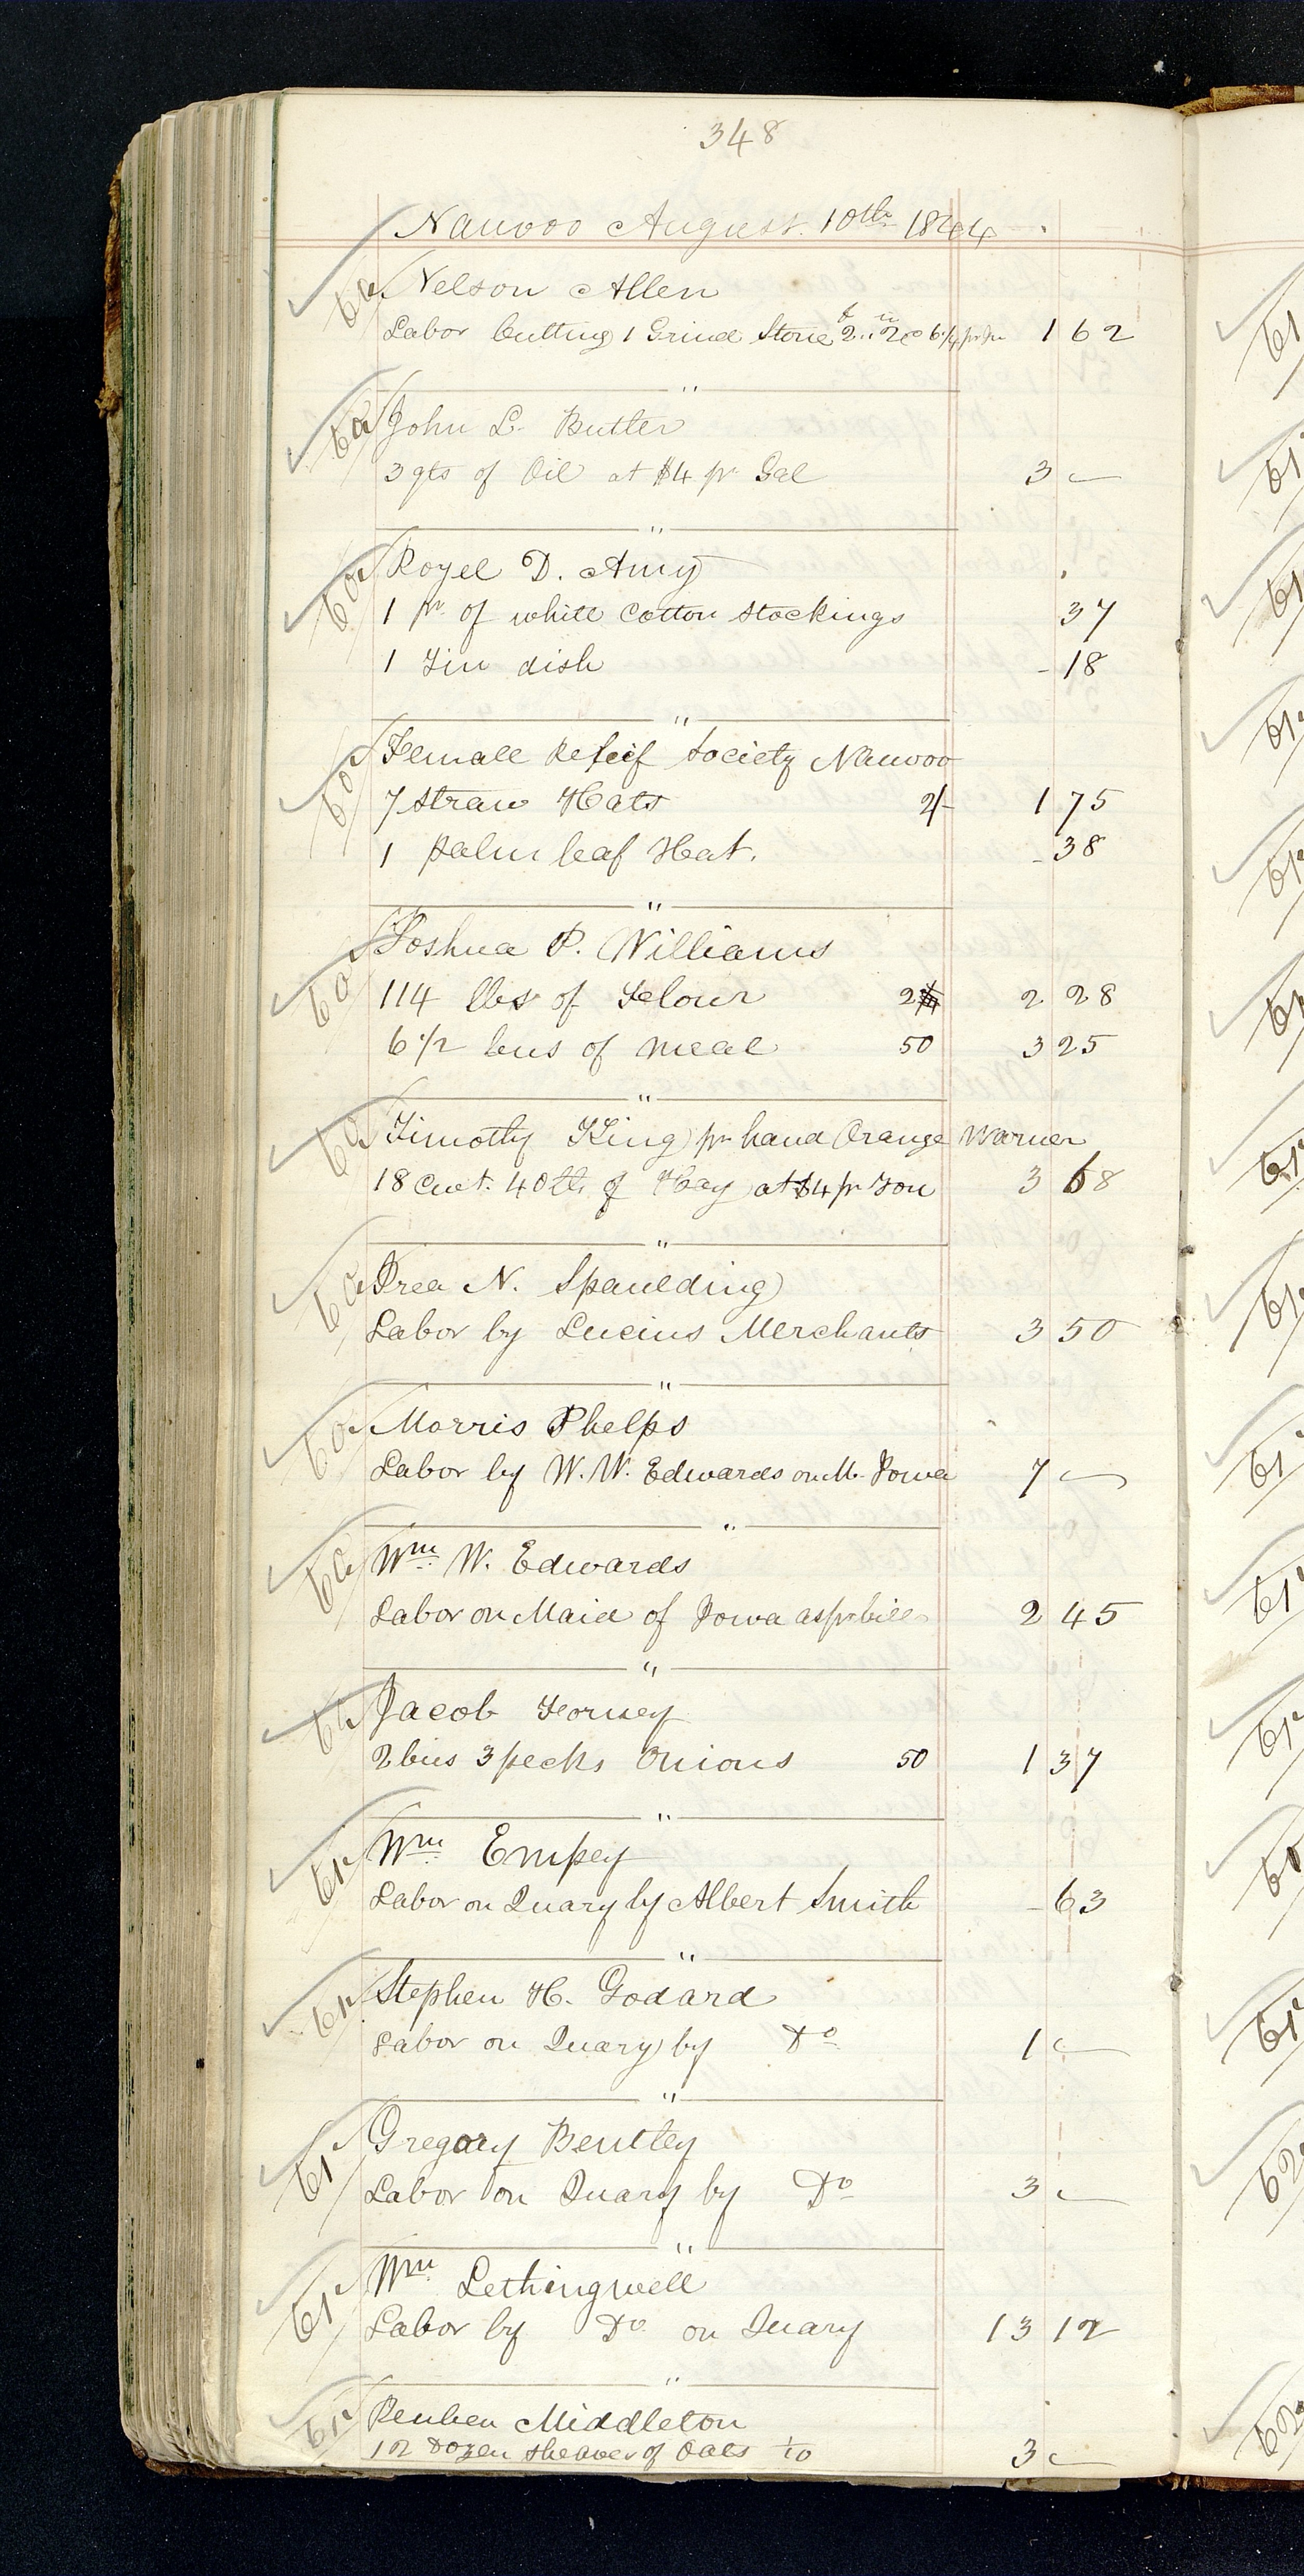 348
Nauvoo August 10th 1844
Nelson Allen
Labor Cutting 1 Grind Stone 2 f 2 in @ 6 1/4 pr In 1 62
"
John L. Butler
3 qts of Oil at $4 pr Gal 3 —
"
Royel D. Amy
1 pr of white Cotton Stockings 37
1 Tin dish - 18
"
Female Releif Society Nauvoo
7 Straw Hats 2/- 1 75
1 palm leaf Hat. - 38
"
Joshua P. Williams
114 lbs of Flour 2 2 28
6 1/2 bus of meal 50 3 25
"
Timothy King pr hand Orange Warner
18 Cwt. 40 lb of Hay at $4 pr Ton 3 68
"
Irea N. Spaulding
Labor by Lucius Merchants 3 50
"
Morris Phelps
Labor by W. W. Edwards on M. Iowa 7 —
"
Wm W. Edwards
Labor on Maid of Iowa as pr bill 2 45
"
Jacob Forney
2 bus 3 pecks Onions 50 1 37
"
Wm Empey
Labor on Quary by Albert Smith - 63
"
Stephen H. Godard
Labor on Quary by Do 1 —
"
Gregory Bentley
Labor on Quary by Do 3 —
"
Wm Lethingwell
Labor by Do on Quary 13 12
"
Reuben Middleton
12 Dozen sheaves of Oats 3 —